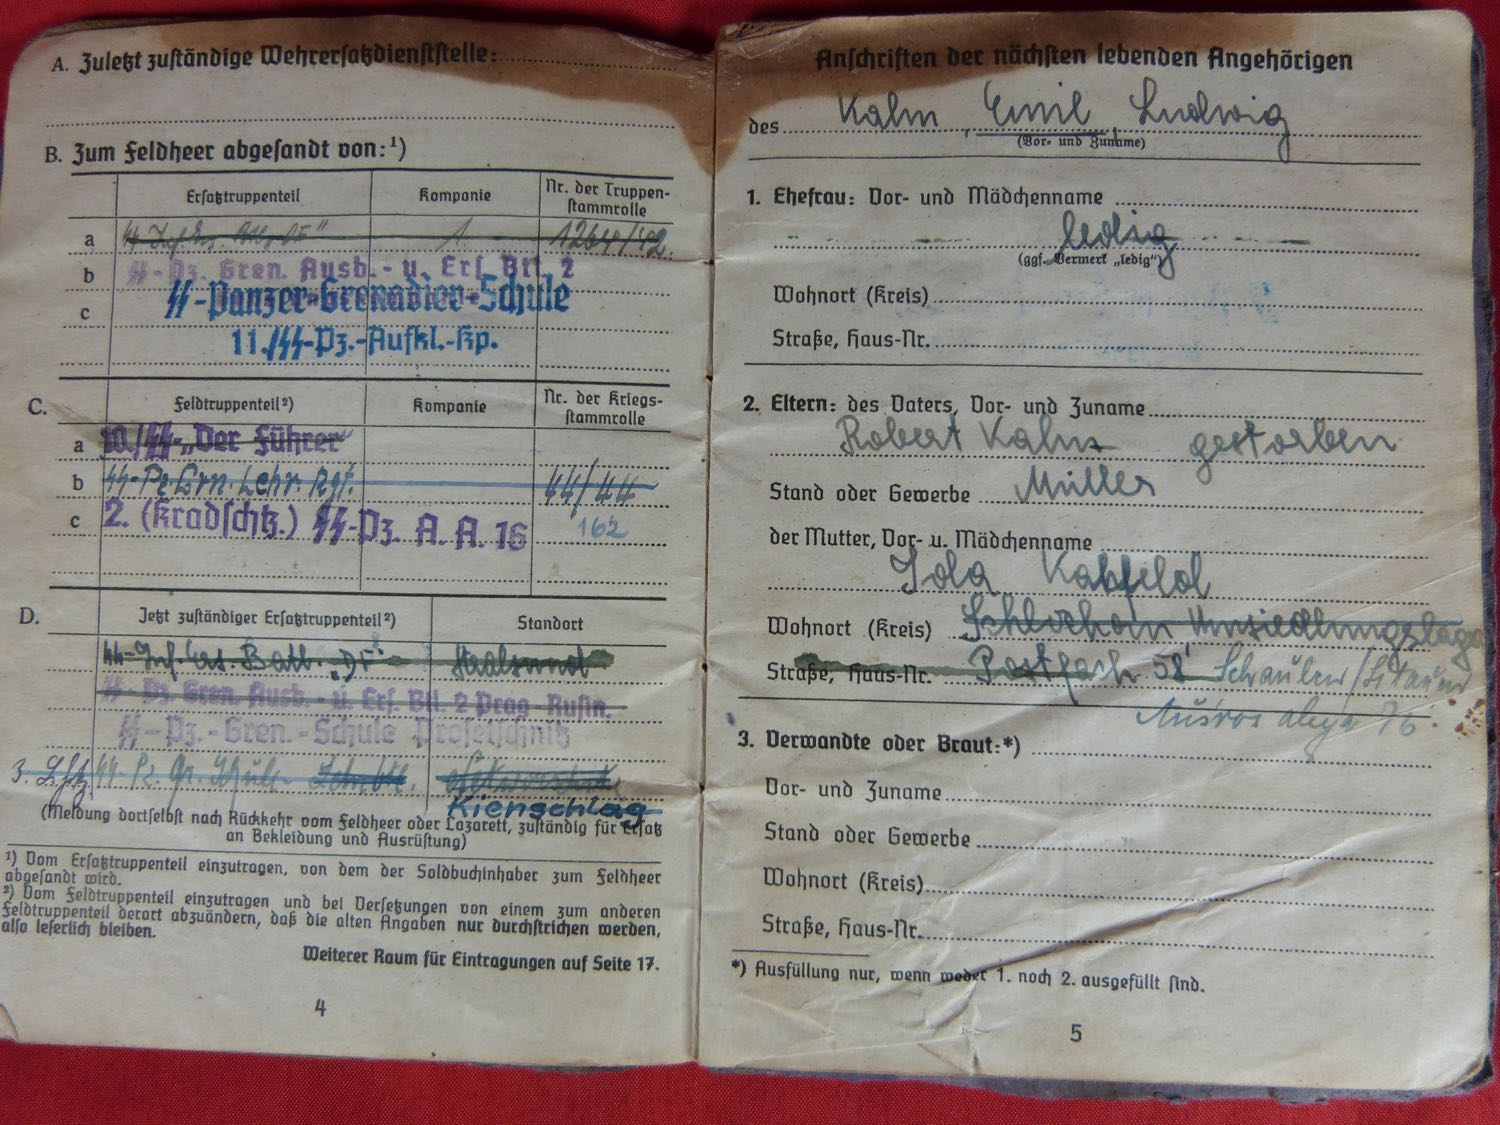 A. Zuletzt zuständige Wehrersatzdienststelle:
B. Zum Feldheer abgesandt von:¹)
Ersatztruppenteil
Kompanie
Nr. der Truppen-
stammrolle
a
1.
b ᛋᛋ-Pz. Gren. Ausb.- u. Ers. Btl. 2
ᛋᛋ-Panzer-Grenadier-Schule
c
11./ᛋᛋ-Pz.-Aufkl.-Kp.
C.
Feldtruppenteil²)
Kompanie
Nr. der Kriegs-
stammrolle
a 10./ᛋᛋ-„Der Führer"
b ᛋᛋ-Pz. Grn. Lehr. Rgt. 44/44
c 2. (Kradschtz.) ᛋᛋ-Pz. A. A. 16 162
D.
Jetzt zuständiger Ersatztruppenteil²)
Standort
Stralsund
ᛋᛋ-Pz. Gren. Ausb.- u. Ers. Btl. 2 Prag-Rusin.
ᛋᛋ-Pz.-Gren.-Schule Proßtschnitz
ᛋᛋ-Pz. Gr. Schule
Kienschlag
(Meldung dortselbst nach Rückkehr vom Feldheer oder Lazarett, zuständig für Ersatz
an Bekleidung und Ausrüstung)
¹) Vom Ersatztruppenteil einzutragen, von dem der Soldbuchinhaber zum Feldheer
abgesandt wird.
²) Vom Feldtruppenteil einzutragen und bei Versetzungen von einem zum anderen
Feldtruppenteil derart abzuändern, daß die alten Angaben nur durchstrichen werden,
also leserlich bleiben.
Weiterer Raum für Eintragungen auf Seite 17.
4
Anschriften der nächsten lebenden Angehörigen
des Kalm, Emil Ludwig
(Vor- und Zuname)
1. Ehefrau: Vor- und Mädchenname
ledig
(ggf. Vermerk „ledig")
Wohnort (Kreis)
Straße, Haus-Nr.
2. Eltern: des Vaters, Vor- und Zuname
Robert Kalm gestorben
Stand oder Gewerbe Müller
der Mutter, Vor- u. Mädchenname
Ida
Wohnort (Kreis) Umsiedlungslager
Straße, Haus-Nr. Postfach 58 Schaulen/Litauen
Ausros aleja 76
3. Verwandte oder Braut:*)
Vor- und Zuname
Stand oder Gewerbe
Wohnort (Kreis)
Straße, Haus-Nr.
*) Ausfüllung nur, wenn weder 1. noch 2. ausgefüllt sind.
5